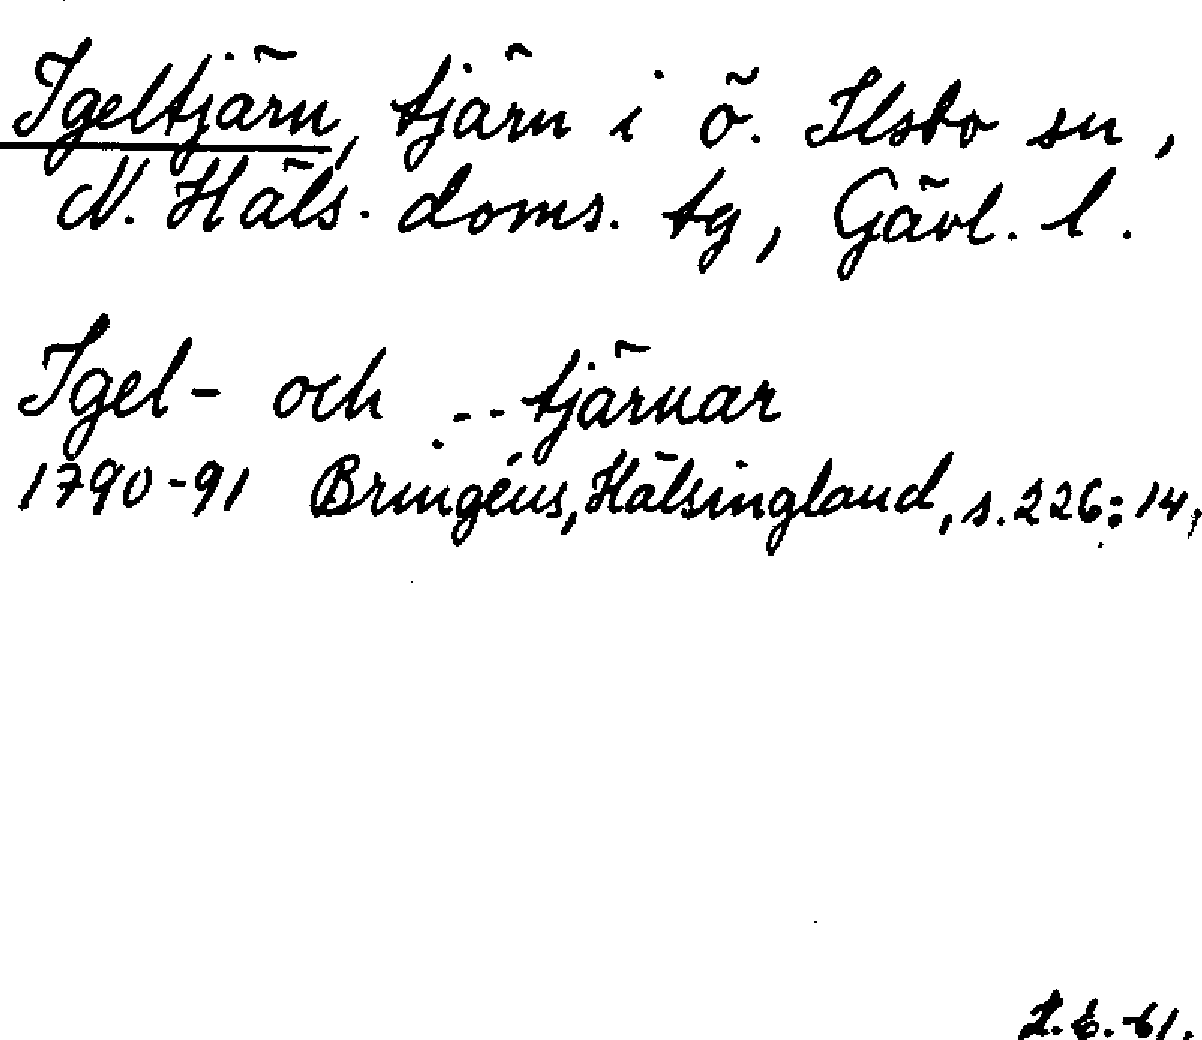 Igeltjärn, tjärn i ö. Ilsbo sn,
N. Häls. doms. tg, Gävl. l.
Igel- och ... tjärnar
1790-91 Bringéus, Hälsingland, s. 226:14,